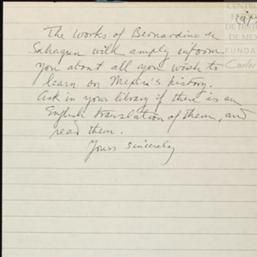 The works of Bernardino de
Sahagun will amply inform
you about all you wish to
learn on Mexico's history.
Ask in your library if there is an
English translation of them, and
read them.
Yours sincerely